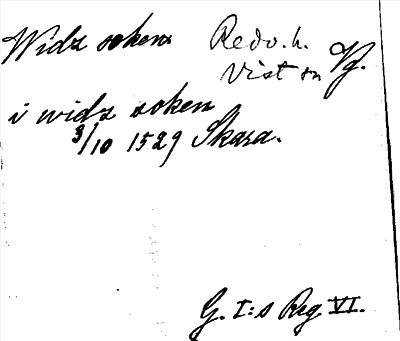 Widz soken Redv. h. Vg.
Vist sn
i widz soken
3/10 1529 Skara.
G. I:s Reg VI.